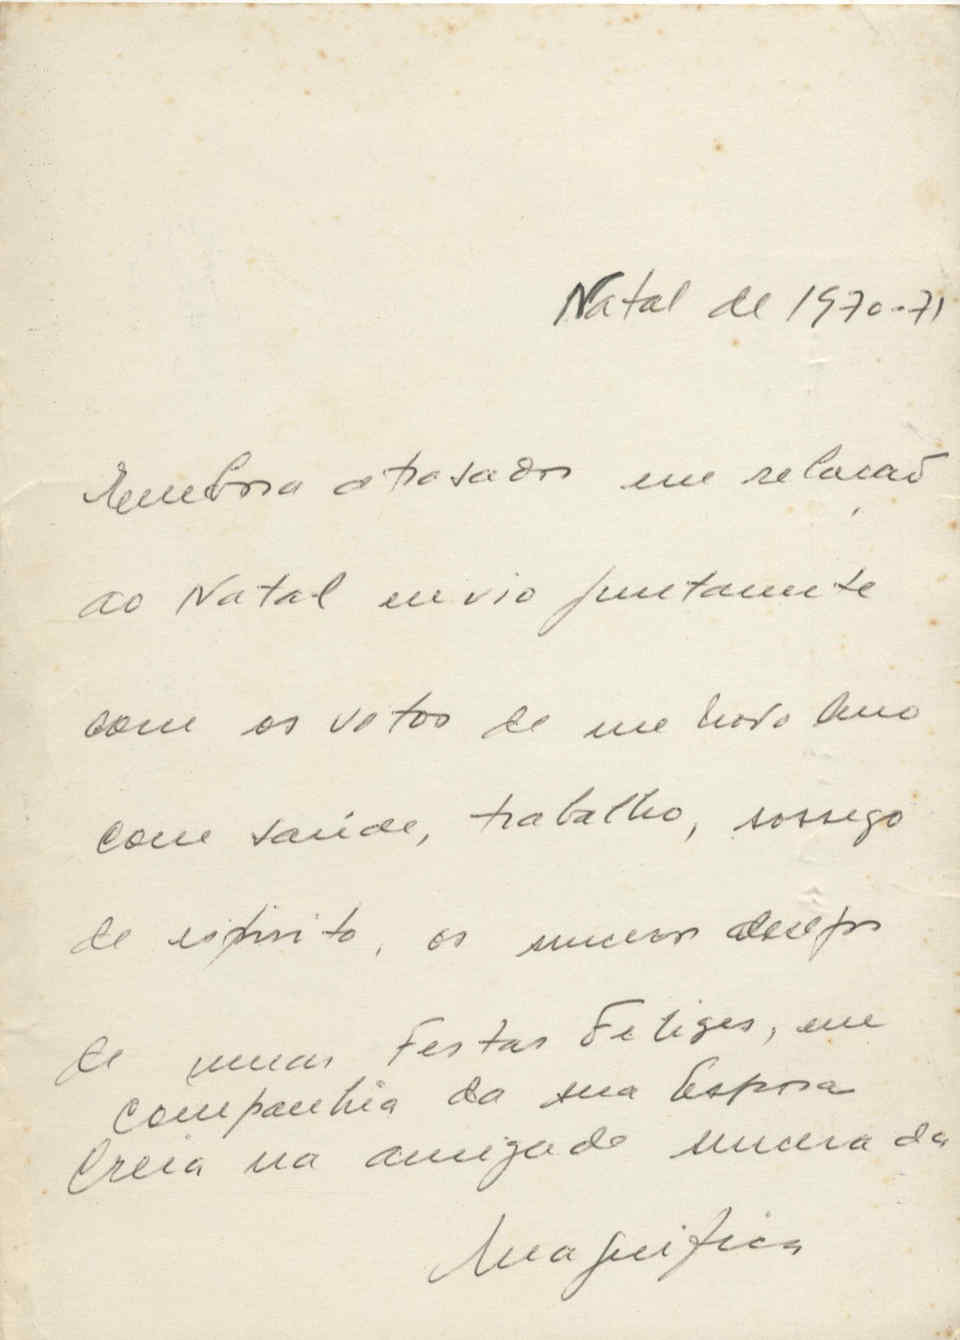 Natal de 1970-71
Embora atrasados em relação
ao Natal envio juntamente
com os votos de um Novo Ano
com saúde, trabalho, sossego
de espírito, os sinceros desejos
de umas Festas Felizes, em
companhia da sua Esposa
Creia na amizade sincera da
Magnífica